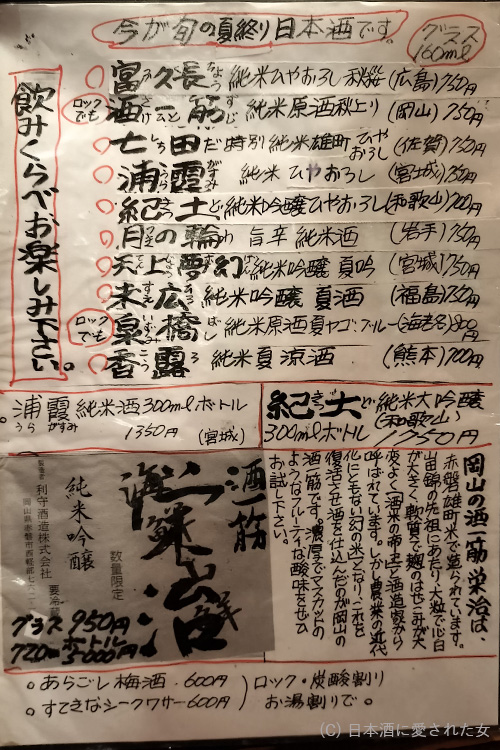 今が旬の夏終り日本酒です。
グラス
160ml
飲みくらべお楽しみ下さい。
富久長 純米ひやおろし 秋桜(広島)750円
ロックでも
酒一筋 純米原酒秋上り(岡山)750円
七田 特別純米雄町ひやおろし(佐賀)750円
浦霞 純米ひやおろし(宮城)750円
紀土 純米吟醸ひやおろし(和歌山)700円
月の輪 旨辛 純米酒(岩手)750円
天上夢幻 純米吟醸 夏吟(宮城)750円
末広 純米吟醸 夏酒(福島)750円
ロックでも
泉橋 純米原酒夏ヤゴ・ブルー(海老名)800円
香露 純米夏涼酒(熊本)700円
浦霞純米酒300mlボトル
うらがすみ
1350円 (宮城)
紀土 純米大吟醸
(和歌山)
300mlボトル 1750円
酒一筋
海鮮山鮮酒
数量限定
純米吟醸
製造者 利守酒造株式会社
岡山県赤磐市西軽部
グラス 950円
720mlボトル
5000円
岡山の酒一筋 栄治は、
赤磐雄町米で造られています。
山田錦の先祖にあたり、大粒で心白
が大きく、軟質で麹のはぜこみが大
変よく「酒米の帝王」と酒造家から
呼ばれています。しかし農業の近代
化にともない幻の米となり、これを
復活させ酒を仕込んだのが岡山の
酒一筋です。濃厚でマスカットの
ようなフルーティな酸味をぜひ
お試し下さい。
。あらごし梅酒 600円
。すてきなシークワサー600円
ロック・炭酸割り
お湯割りで。
(C) 日本酒に愛された女